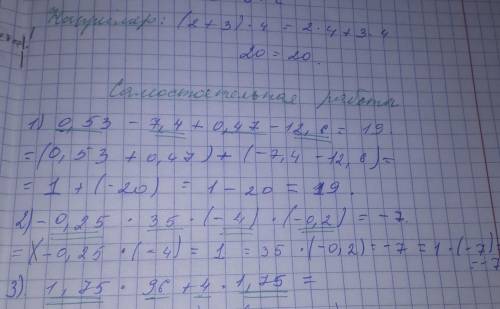 Например: (2 + 3) · 4 = 2 · 4 + 3 · 4
20 = 20.
Самостоятельная работа
1) 0,53 - 7,4 + 0,47 - 12,6 = 19.
= (0,53 + 0,47) + (-7,4 - 12,6) =
= 1 + (-20) = 1 - 20 = 19.
2) - 0,25 · 35 · (-4) · (-0,2) = -7.
= (-0,25 · (-4) = 1 = 35 · (-0,2) = -7 = 1 · (-7)
= -7
3) 1,75 · 96 + 4 · 1,75 =